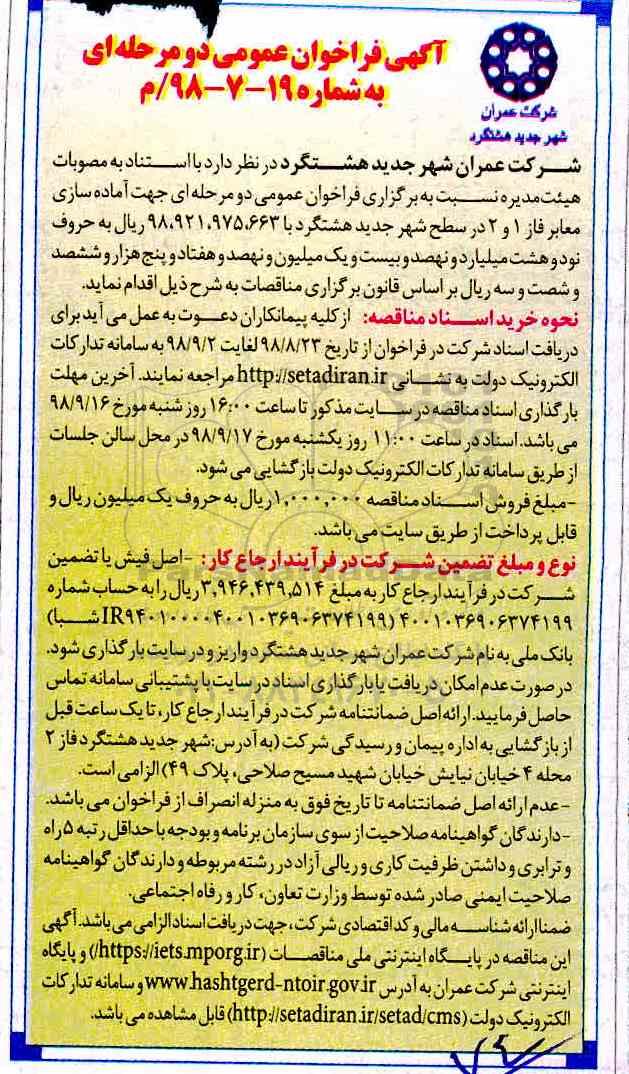 شرکت عمران
شهر جدید هشتگرد
آگهی فراخوان عمومی دو مرحله‌ای
به شماره ۱۹-۷-۹۸/م
شرکت عمران شهر جدید هشتگرد در نظر دارد با استناد به مصوبات
هیئت مدیره نسبت به برگزاری فراخوان عمومی دو مرحله ای جهت آماده سازی
معابر فاز ۱ و ۲ در سطح شهر جدید هشتگرد با ۹۸،۹۲۱،۹۷۵،۶۶۳ ریال به حروف
نود و هشت میلیارد و نهصد و بیست و یک میلیون و نهصد و هفتاد و پنج هزار و ششصد
و شصت و سه ریال بر اساس قانون برگزاری مناقصات به شرح ذیل اقدام نماید.
نحوه خرید اسناد مناقصه: از کلیه پیمانکاران دعوت به عمل می آید برای
دریافت اسناد شرکت در فراخوان از تاریخ ۹۸/۸/۲۳ لغایت ۹۸/۹/۲ به سامانه تدارکات
الکترونیک دولت به نشانی http://setadiran.ir مراجعه نمایند. آخرین مهلت
بارگذاری اسناد مناقصه در سایت مذکور تا ساعت ۱۶:۰۰ روز شنبه مورخ ۹۸/۹/۱۶
می باشد. اسناد در ساعت ۱۱:۰۰ روز یکشنبه مورخ ۹۸/۹/۱۷ در محل سالن جلسات
از طریق سامانه تدارکات الکترونیک دولت بازگشایی می شود.
-مبلغ فروش اسناد مناقصه ۱,۰۰۰,۰۰۰ ریال به حروف یک میلیون ریال و
قابل پرداخت از طریق سایت می باشد.
نوع و مبلغ تضمین شرکت در فرآیند ارجاع کار: -اصل فیش یا تضمین
شرکت در فرآیند ارجاع کار به مبلغ ۳,۹۴۶,۴۳۹,۵۱۴ ریال را به حساب شماره
۴۰۰۱۰۳۶۹۰۶۳۷۴۱۹۹ (IR۹۴۰۱۰۰۰۰۴۰۰۱۰۳۶۹۰۶۳۷۴۱۹۹ شبا)
بانک ملی به نام شرکت عمران شهر جدید هشتگرد واریز و در سایت بارگذاری شود.
در صورت عدم امکان دریافت یا بارگذاری اسناد در سایت با پشتیبانی سامانه تماس
حاصل فرمایید. ارائه اصل ضمانتنامه شرکت در فرآیند ارجاع کار، تا یک ساعت قبل
از بازگشایی به اداره پیمان و رسیدگی شرکت (به آدرس: شهر جدید هشتگرد فاز ۲
محله ۴ خیابان نیایش خیابان شهید مسیح صلاحی، پلاک ۴۹) الزامی است.
-عدم ارائه اصل ضمانتنامه تا تاریخ فوق به منزله انصراف از فراخوان می باشد.
-دارندگان گواهینامه صلاحیت از سوی سازمان برنامه و بودجه با حداقل رتبه ۵ راه
و ترابری و داشتن ظرفیت کاری و ریالی آزاد در رشته مربوطه و دارندگان گواهینامه
صلاحیت ایمنی صادر شده توسط وزارت تعاون، کار و رفاه اجتماعی.
ضمنا ارائه شناسه مالی و کد اقتصادی شرکت، جهت دریافت اسناد الزامی می باشد. آگهی
این مناقصه در پایگاه اینترنتی ملی مناقصات (https://iets.mporg.ir/) و پایگاه
اینترنتی شرکت عمران به آدرس www.hashtgerd-ntoir.gov.ir و سامانه تدارکات
الکترونیک دولت (http://setadiran.ir/setad/cms) قابل مشاهده می باشد.